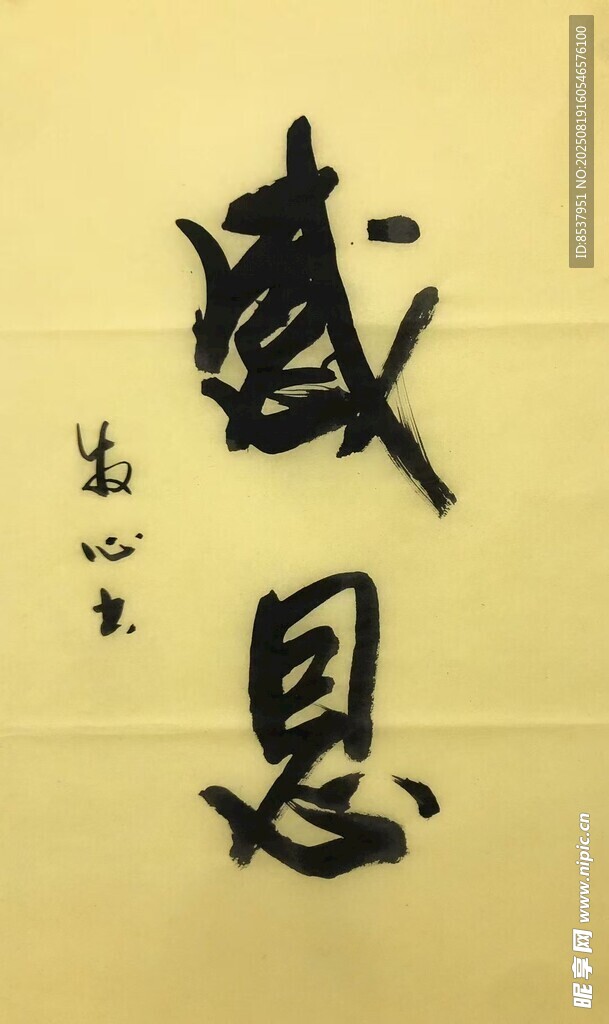 感恩
牧心书
ID:8537951 NO:20250819160546576100
昵享网 www.nipic.cn